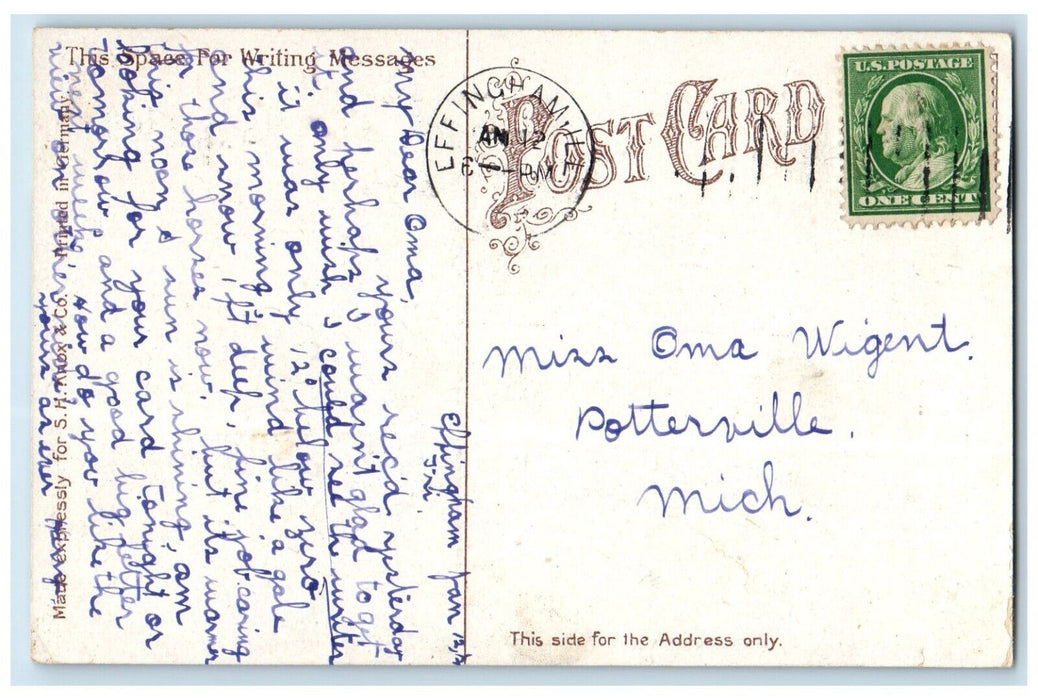 This Space For Writing Messages
POST CARD
U.S. POSTAGE
ONE CENT
EFFINGHAM, ILL
12
PM
Effingham Jan 12/
Ill.
My Dear Oma,
yours rec'd yesterday
and perhaps I wasn't glad to get
it. only wish I could see the writer
it was only 12° below zero
this morning wind like a gale
and snow, ft deep, fine job caring
for those horses now, but its warmer
this noon & sun is shining, am
looking for your card tonight or
tomorrow & and a good big letter
next week, How do you like the
yours as ever Harry
Miss Oma Wigent.
Potterville.
Mich.
This side for the Address only.
Made expressly for S. H. Knox & Co. Printed in Germany.